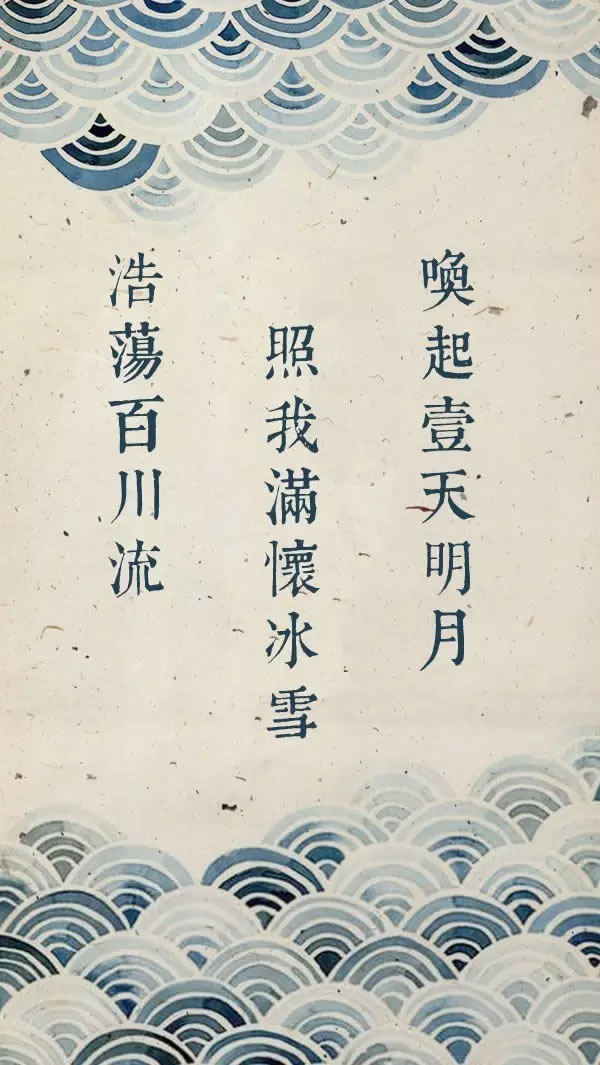 喚起壹天明月
照我滿懷冰雪
浩蕩百川流